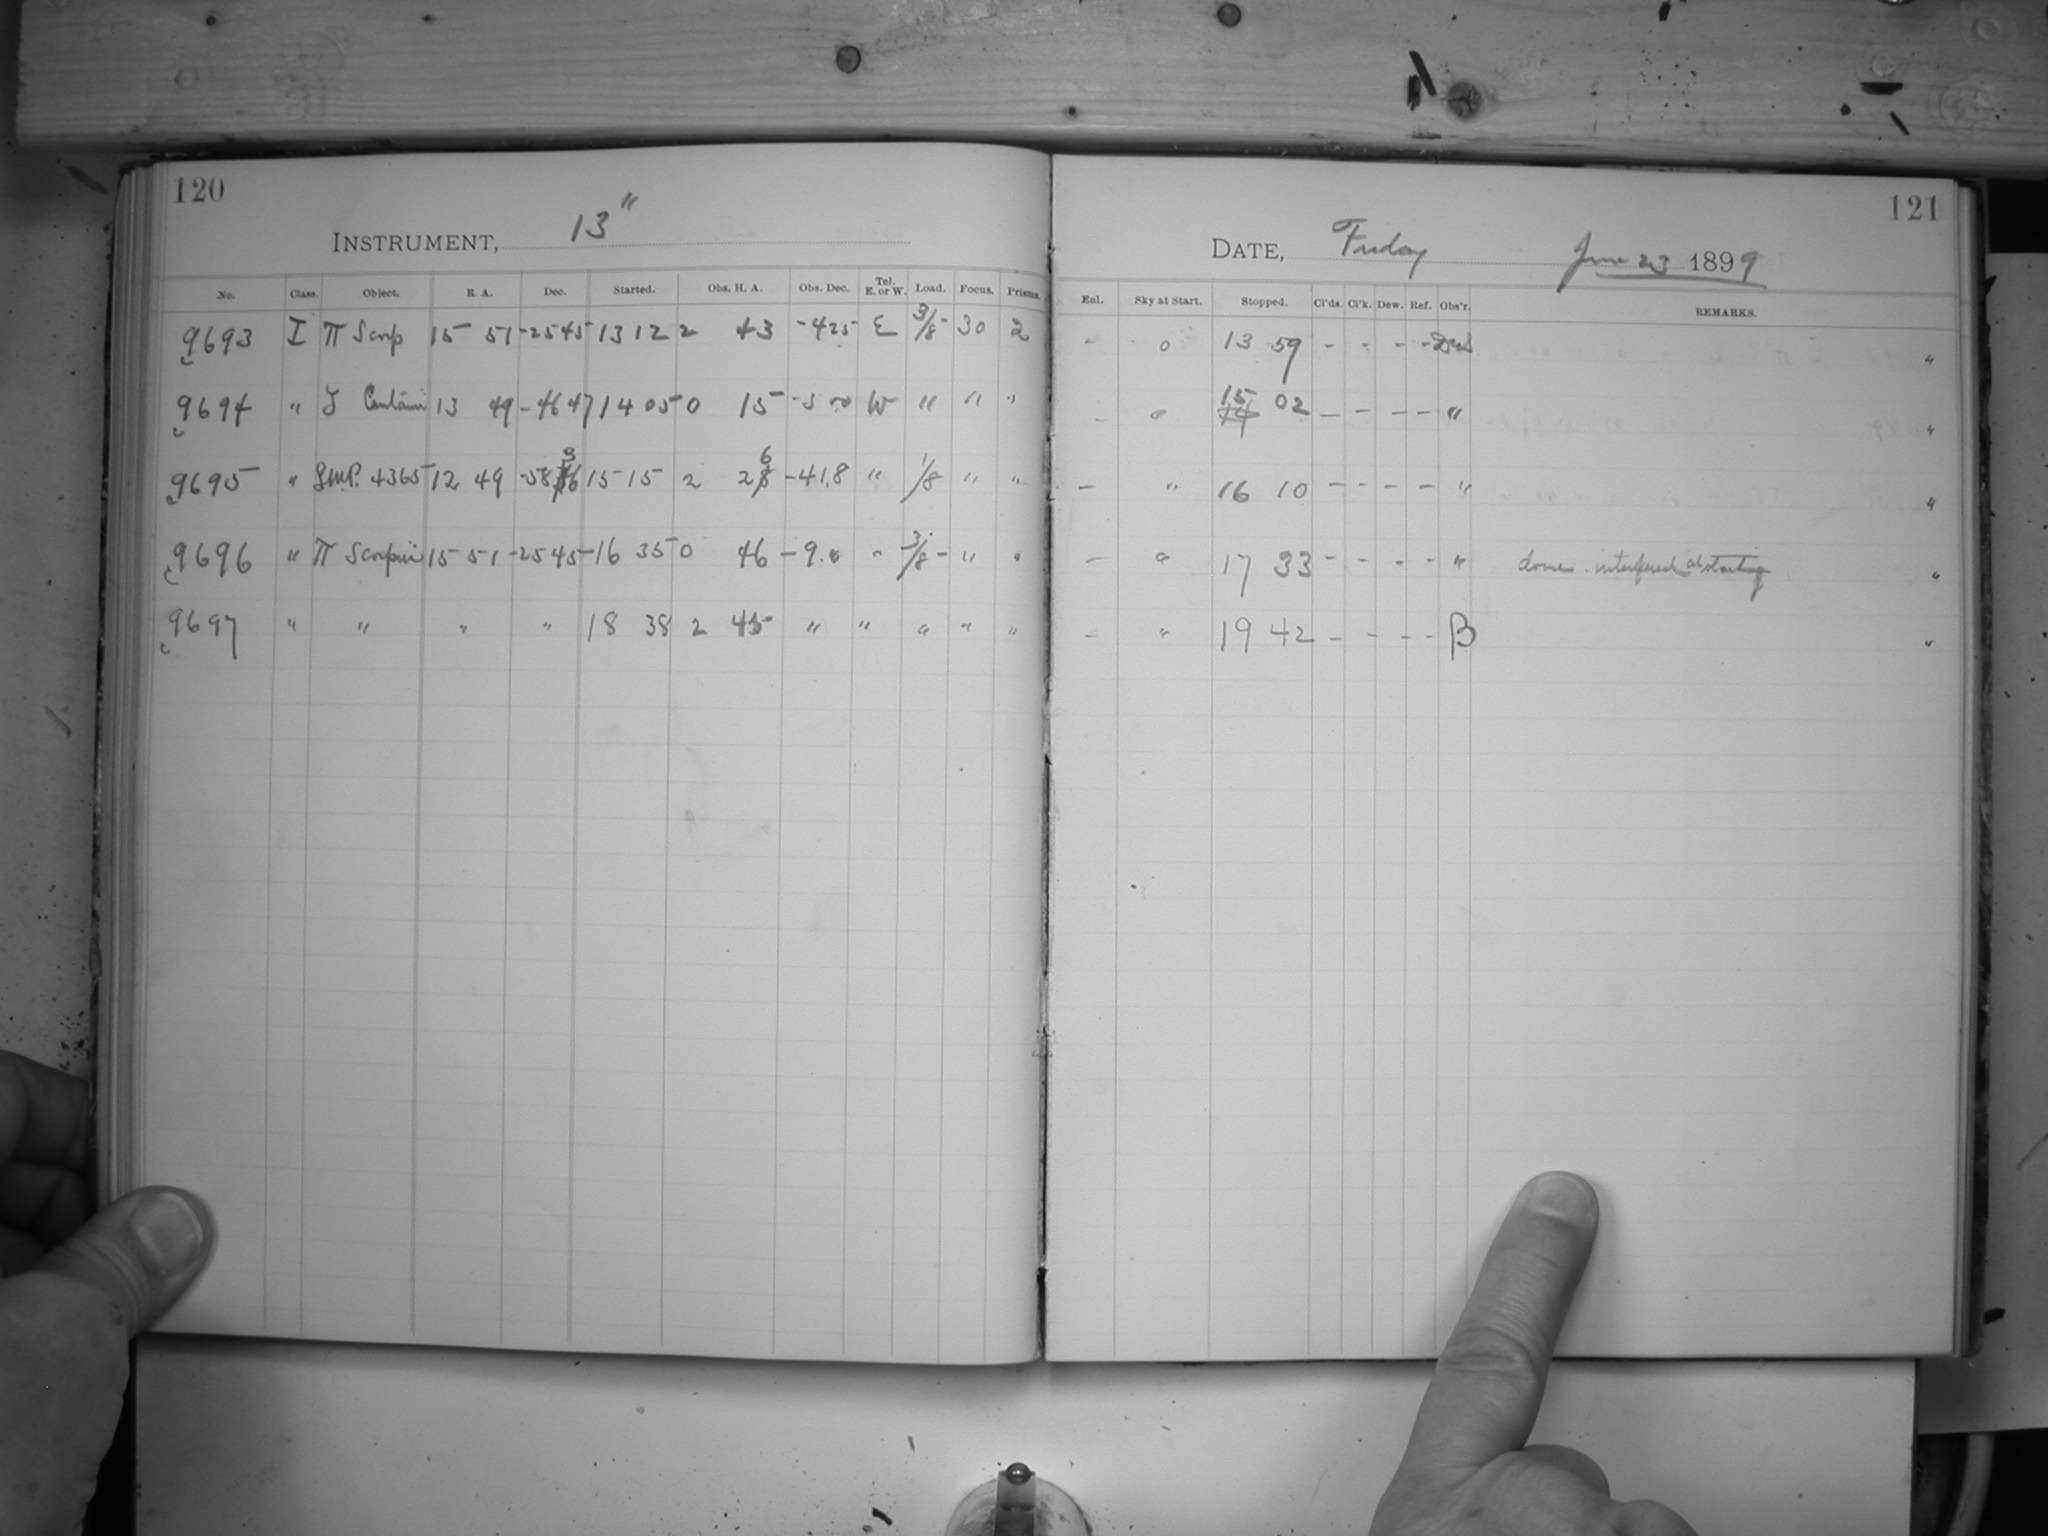 120
INSTRUMENT, 13"
No. Class. Object. R. A. Dec. Started. Obs. H. A. Obs. Dec. Tel. E. or W. Load. Focus. Prisms.
9693 I π Scorp 15 51 -25 45 13 12 2 43 -425 E 3/8 30 2
9694 " Centauri 13 49 -46 47 14 05 0 15 W " " "
9695 " 4365 12 49 -58 15 15 2 26 -41.8 " 1/8 " "
9696 " π Scorpii 15 51 -25 45 16 35 0 46 -9.0 " 3/8 " "
9697 " " " " 18 38 2 45 " " " " "
121
DATE, Friday June 23 1899
Enl. Sky at Start. Stopped. Cl'ds. Cl'k. Dew. Ref. Obs'r. REMARKS.
- 0 13 59 - - - - "
- " 15 02 - - - - " "
- " 16 10 - - - - " "
- " 17 33 - - - - " dome interfered at starting "
- " 19 42 - - - - β "